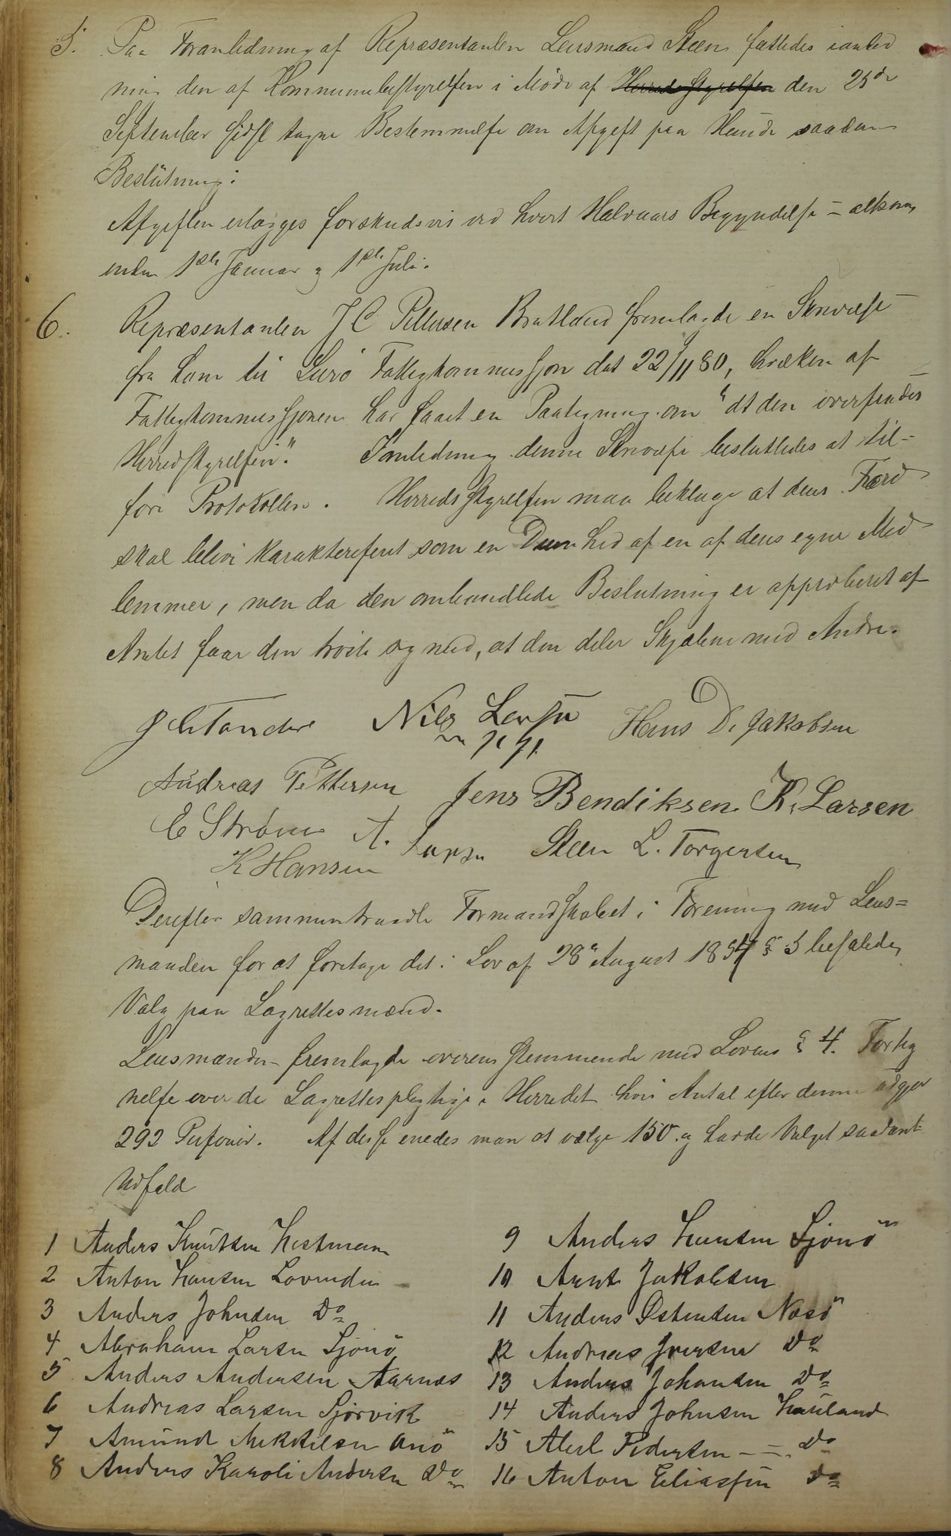 5. Paa Foranledning af Repræsentanten Lensmand Steen fattedes i anled
ning den af Kommunebestyrelsen i Møde af Herredsstyrelsen den 25de
September sidst tagne Bestemmelse om Afgift paa Hunde saadan
Beslutning:
Afgiften erlægges forskudsvis ved hvert Halvaars Begyndelse =
inden 1ste Januar og 1ste Juli.
6. Repræsentanten J C Pettersen Bratland fremlagde en Skrivelse
fra ham til Lurö Fattigkommission dat 22/11 80, hvilken af
Fattigkommissjonen har faaet en Paategning om "at den oversendes
Herredsstyrelsen". I anledning denne Skrivelse besluttedes at til=
føre Protokollen. Herredsstyrelsen maa beklage at dens Færd
skal blive karakteriseret som en Dumhed af en af dens egne Med
lemmer, men da den omhandlede Beslutning er approberet af
Amtet faar den trøste sig med, at den deler Skjæbne med Andre.
Nils Hans D. Jakobsen
Andreas Pettersen Jens Bendiksen K. Larsen
E Strøm A. Larsen Steen L. Torgersen
K Hansen
Derefter sammentraadte Formandskabet i Forening med Lens=
manden for at foretage det i Lov af 28de August 1854 § 3 befalede
Valg paa Lagrettesmænd.
Lensmanden fremlagde overensstemmende med Lovens § 4. Forteg
nelse over de Lagrettespligtige i Herredet hvis Antal efter denne udgjør
292 Personer. Af disse enedes man at vælge 150 og havde Valget saadant
Udfald
1 Anders Knutsen Hestmann
2 Anton Hansen Lovunden
3 Anders Johnsen Do
4 Abraham Larsen Sjonö
5 Anders Andersen Aarnæs
6 Andreas Larsen Sjørvik
7 Amund Mikkelsen Onö
8 Anders Karoli Andersen Do
9 Anders Hansen Sjonö
10 Arnt Jakobsen
11 Anders Østensen Næsö
12 Andreas Iversen Do
13 Anders Johansen Do
14 Anders Johnsen Houland
15 Abel Pedersen — = . Do
16 Anton Eliassen Do